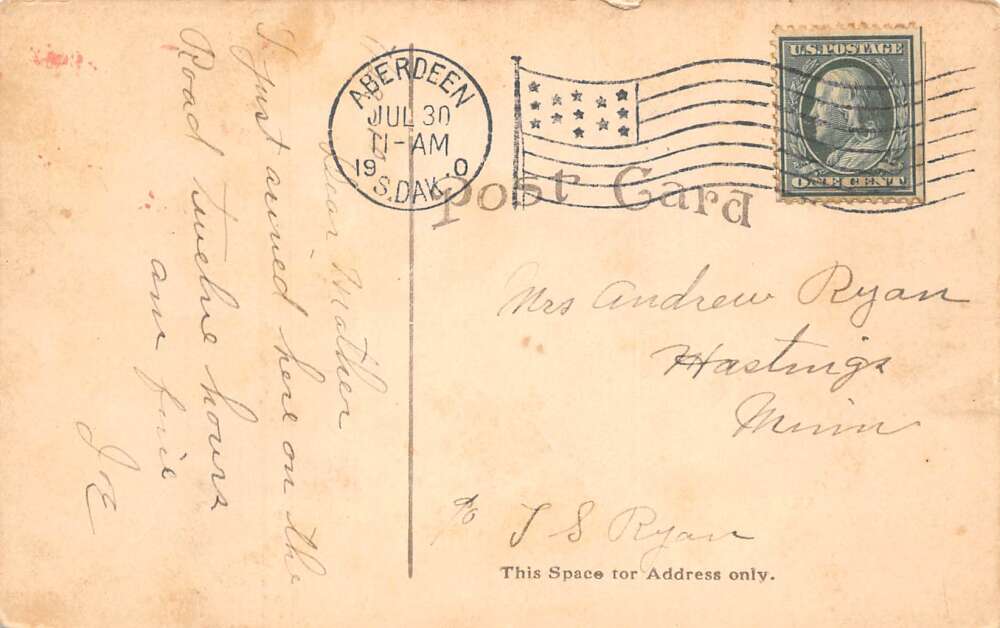 ABERDEEN
JUL 30
11-AM
19 0
S.DAK.
U.S. POSTAGE
ONE CENT
Post Card
Dear Mother
I Just arrived here on the
Road twelve hours
am fine
Joe
Mrs Andrew Ryan
Hastings
Minn
% J S Ryan
This Space for Address only.